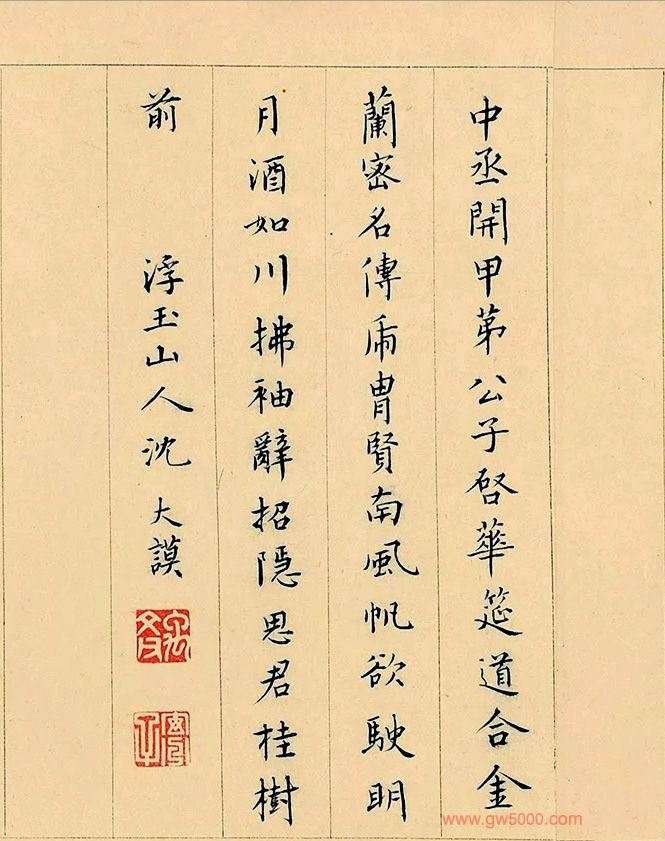 中丞開甲苐公子啓華筵道合金
蘭密名傳帍胄賢南風帆欲駛明
月酒如川拂袖辭招隱思君桂樹
前
浮玉山人沈大謨
www.gw5000.com